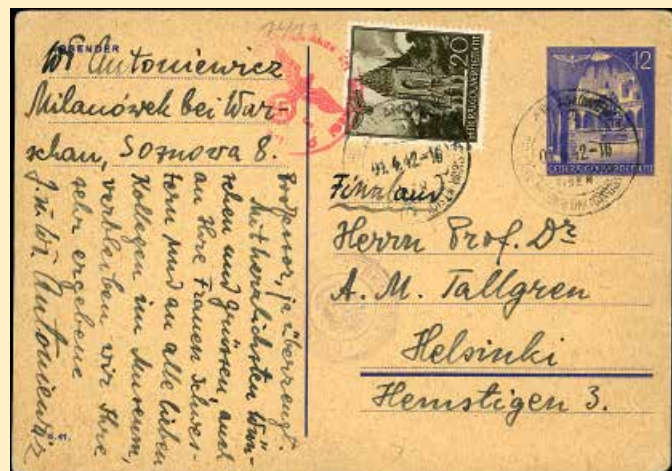 ABSENDER
Wł Antoniewicz
Milanówek bei War-
schau, Sosnowa 8.
Professor, ja überzeugt.
Mit herzlichsten Wün-
schen und Grüssen, auch
an Ihre Frauen Schwes-
tern und an alle lieben
Kollegen im Museum,
verbleiben wir Ihre
sehr ergebene
J. u. Wł. Antoniewicz
20
12
42-16
Finnland
Herrn Prof. Dr
A. M. Tallgren
Helsinki
Hemstigen 3.